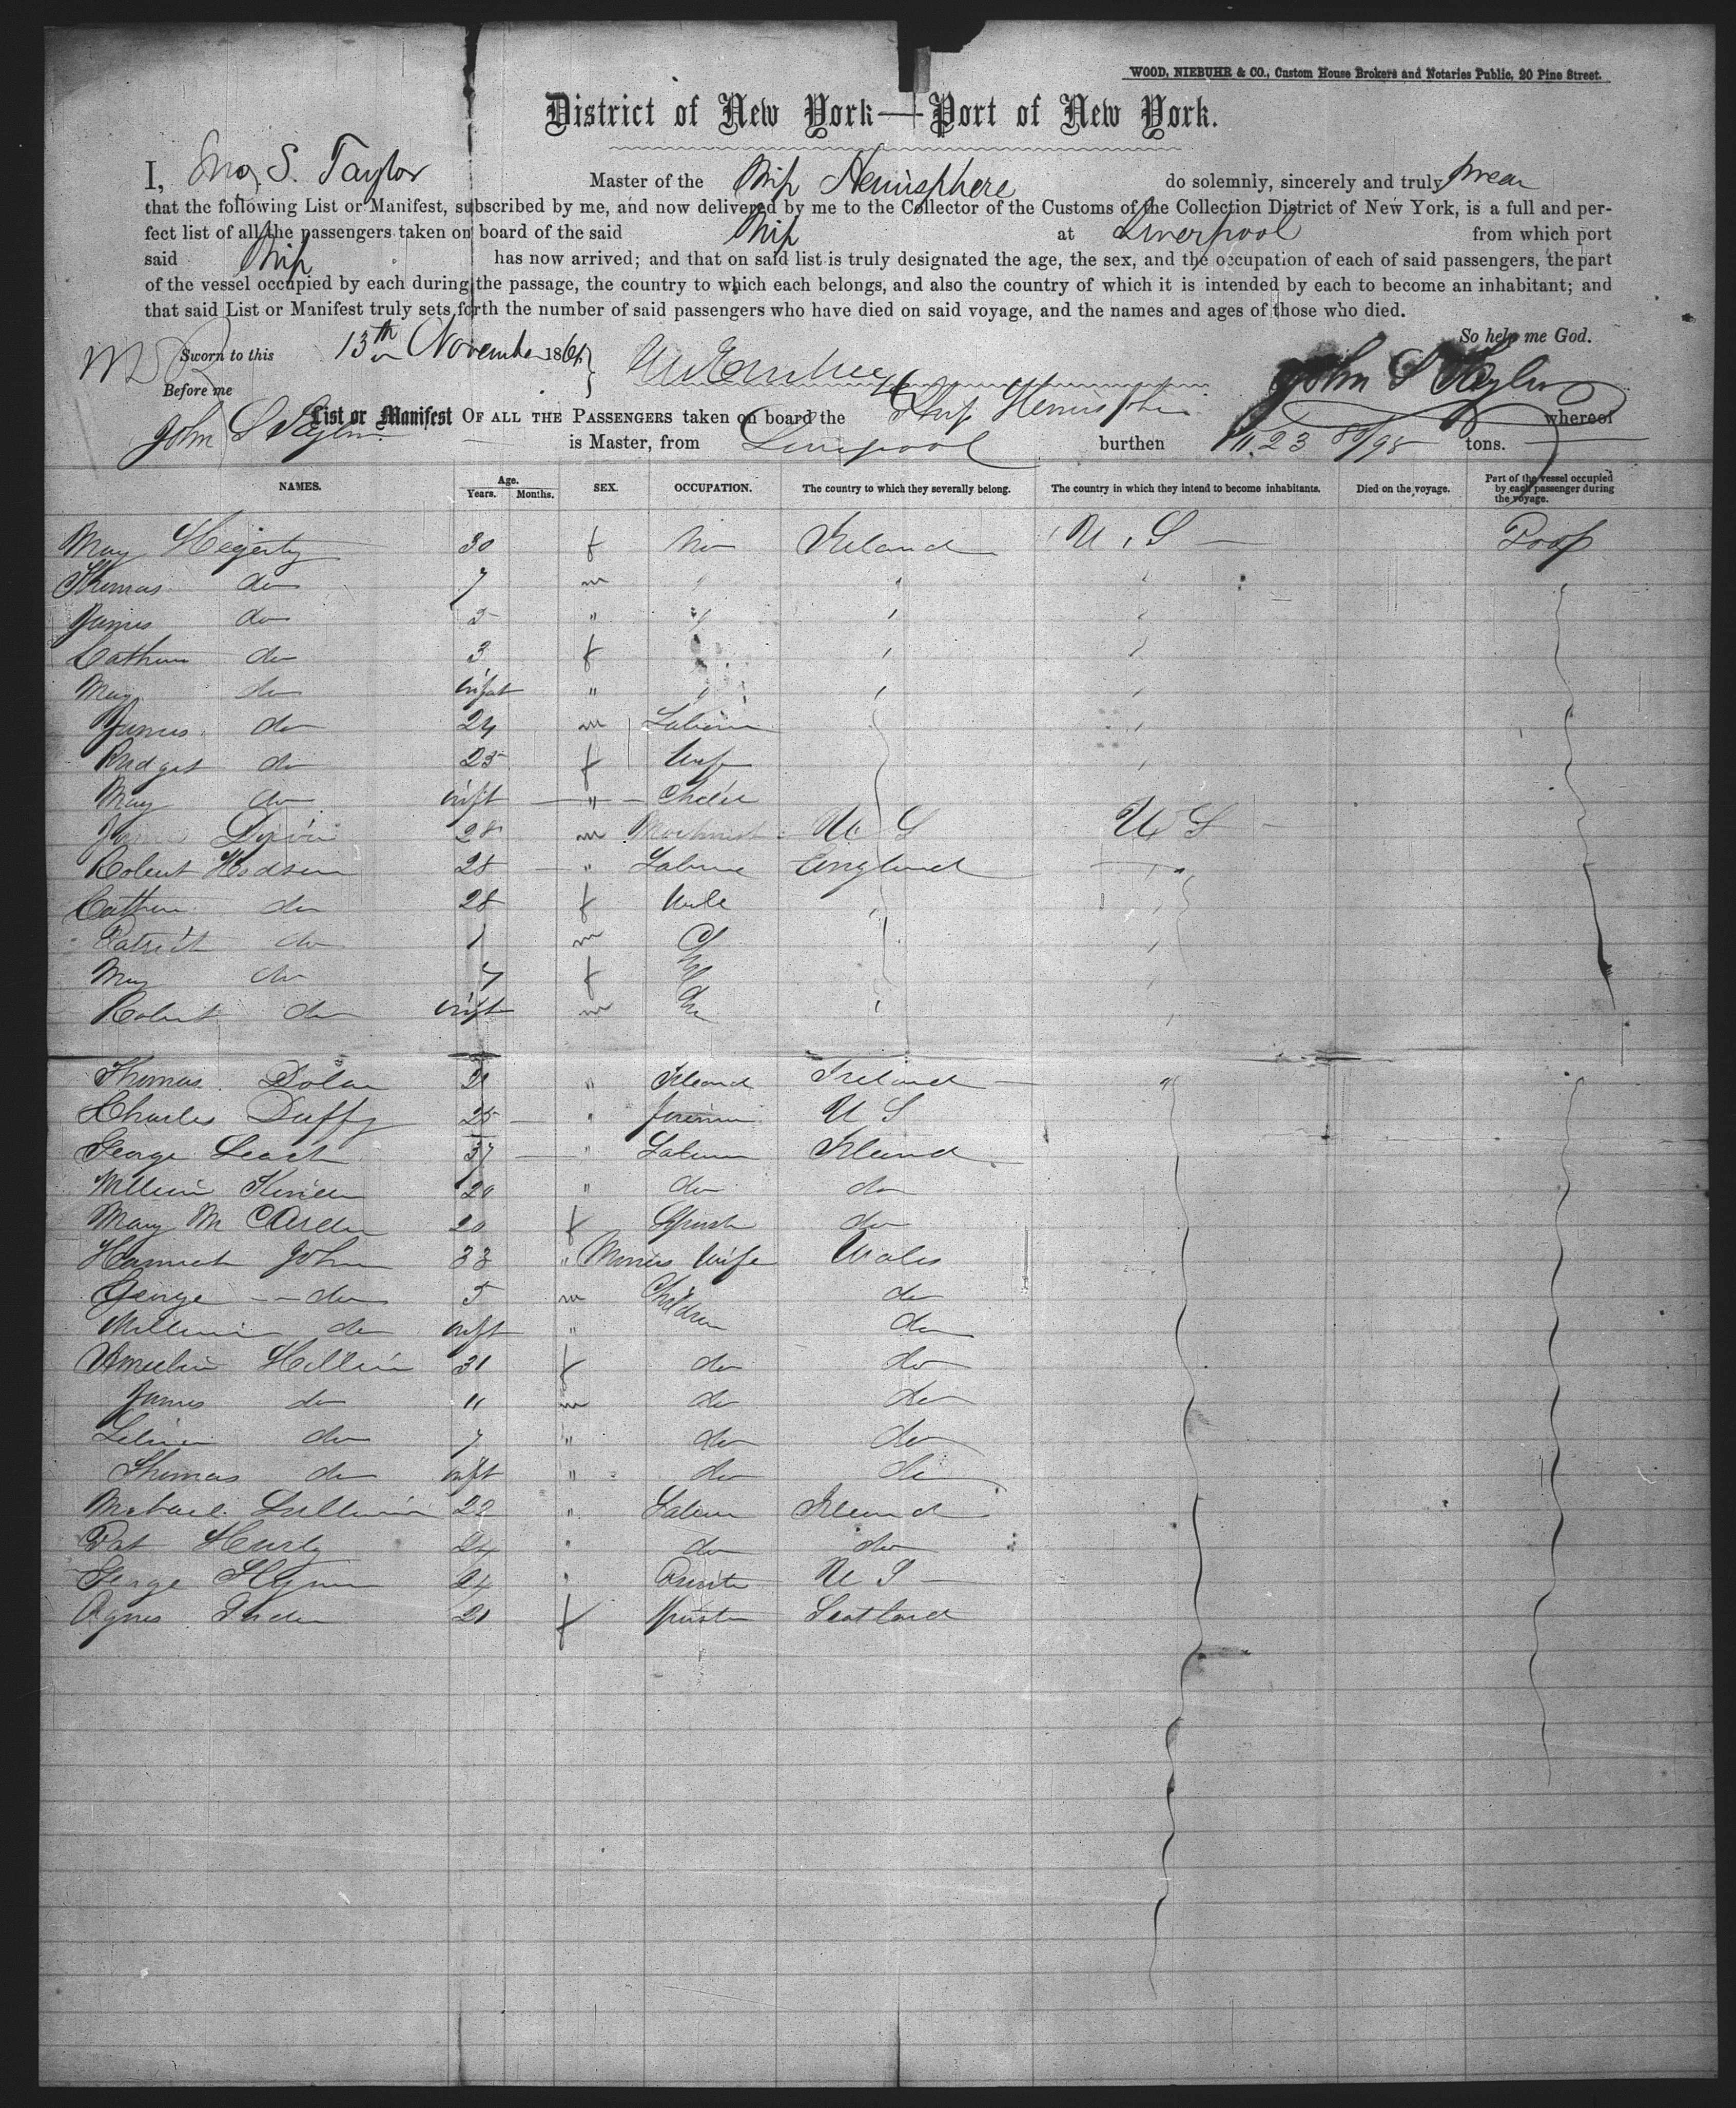 WOOD, NIEBUHR & CO., Custom House Brokers and Notaries Public, 20 Pine Street.
District of New York—Port of New York.
I, Jno. S. Taylor Master of the Ship Hemisphere do solemnly, sincerely and truly swear
that the following List or Manifest, subscribed by me, and now delivered by me to the Collector of the Customs of the Collection District of New York, is a full and per-
fect list of all the passengers taken on board of the said Ship at Liverpool from which port
said Ship has now arrived; and that on said list is truly designated the age, the sex, and the occupation of each of said passengers, the part
of the vessel occupied by each during the passage, the country to which each belongs, and also the country of which it is intended by each to become an inhabitant; and
that said List or Manifest truly sets forth the number of said passengers who have died on said voyage, and the names and ages of those who died.
So help me God.
Sworn to this 13th November 186
Before me John S Taylor
List or Manifest OF ALL THE PASSENGERS taken on board the Ship Hemisphere whereof
John S Taylor is Master, from Liverpool burthen tons.
NAMES. Age. Years. Months. SEX. OCCUPATION. The country to which they severally belong. The country in which they intend to become inhabitants. Died on the voyage. Part of the vessel occupied by each passenger during the voyage.
May Hegerty 30 f Ireland U.S Poop
Thomas do 7 m "
James do 5 " "
Cathrin do 3 f
May do infat " "
James do 24 m Laborer
Bridget do 25 f Wife
May do inft " Child
James 28 m Machinist U S U S
Robert Hodson 28 " Laborer England "
Cathrin do 28 f Wife
Patrick do 1 m Children
May do 7 f
Robert do inft m
Thomas Dolan 21 " Ireland Ireland "
Charles Duffy 25 " U S
George Leach 37 " Laborer Ireland
William 20 " do do
Mary M 20 f Spinster do
Hannah John 33 " Miners Wife Wales
George do 5 m Children do
William do inft " do
31 f do do
James do 11 m do do
do 7 " do do
Thomas do inft " do do
Michael Sullivan 22 " Laborer Ireland
Pat Hurly 24 " do do
George 24 " U S
Agnes 21 f Spinster Scotland